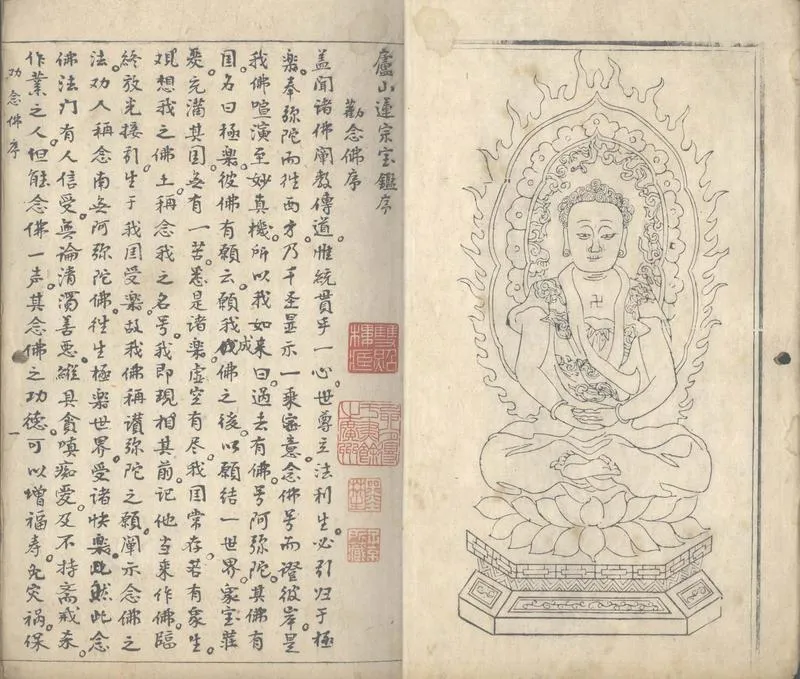 廬山蓮宗宝鑑序
勸念佛序
盖聞诸佛闡教傳道。惟統貫乎一心。世尊立法利生。必引归于極
樂。奉弥陀而往西才。乃千圣显示一乘密意。念佛号而證彼岸。是
我佛喧演至妙真機。所以我如来曰。過去有佛。号阿弥陀。其佛有
国。名曰極樂。彼佛有願云。願我成佛之後。以願結一世界。家宝莊
嚴。充满其国。無有一苦。悉是诸樂。虚空有尽。我国常存。若有衆生。
观想我之佛土。称念我之名号。我即現相其前。记他当来作佛。臨
终放光接引。生于我国受樂。故我佛称讃弥陀之願。闡示念佛之
法。劝人称念南無阿弥陀佛。往生極樂世界。受诸快樂。然此念
佛法门。有人信受。無論清濁善悪。雖具貪嗔痴爱。及不持斋戒。杀
作業之人。但能念佛一声。其念佛之功德。可以增福寿。免灾祸。保
劝念佛序 一